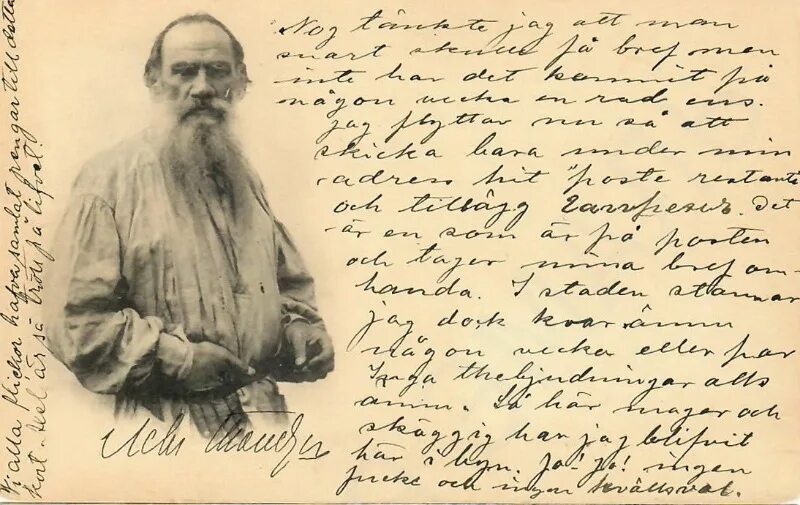 Nog tänkte jag att man
snart skulle få bref men
inte har det kommit på
någon vecka en rad ens.
Jag flyttar nu så att
skicka bara under min
adress hit "poste restante
och tillägg Det
är en som är på posten
och tager mina bref om-
handa. I staden stannar
jag dock kvar ännu
någon vecka eller par
Inga thebjudningar alls
ännu. Så här mager och
skäggig har jag blifvit
här i byn. Ja-ja! ingen
och ingen kvällsvat.
alla flickor hafva samlat pengar till detta
kort - så trött på lifvet!